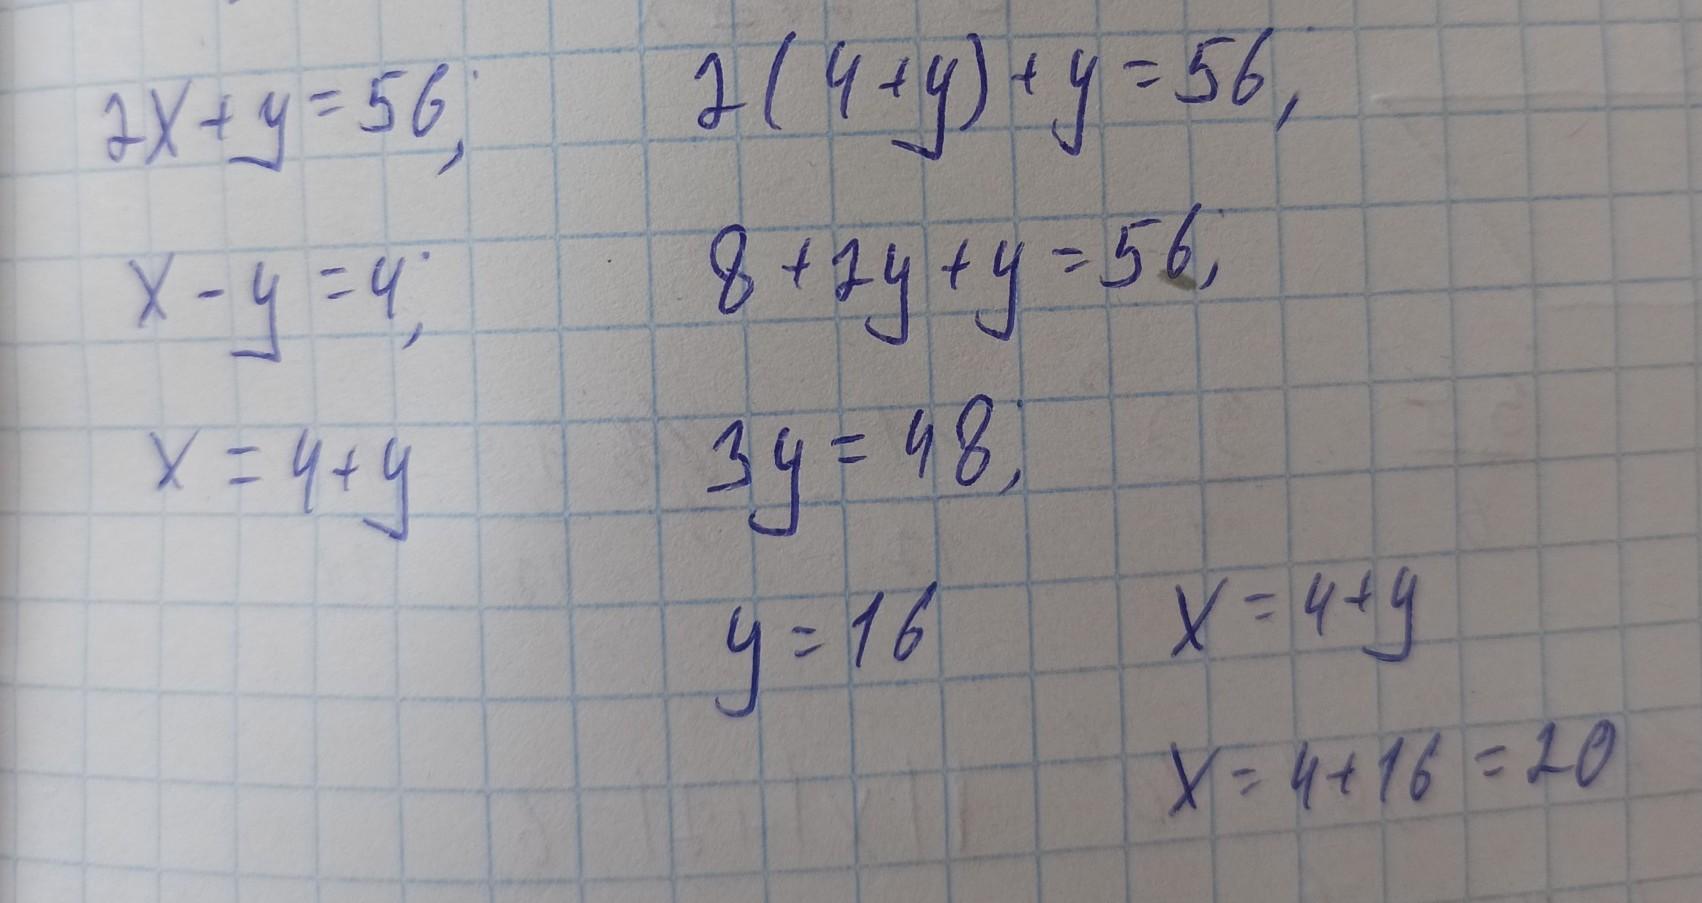 2x+y=56;
x-y=4;
x=4+y
2(4+y)+y=56,
8+2y+y=56;
3y=48;
y=16
x=4+y
x=4+16=20